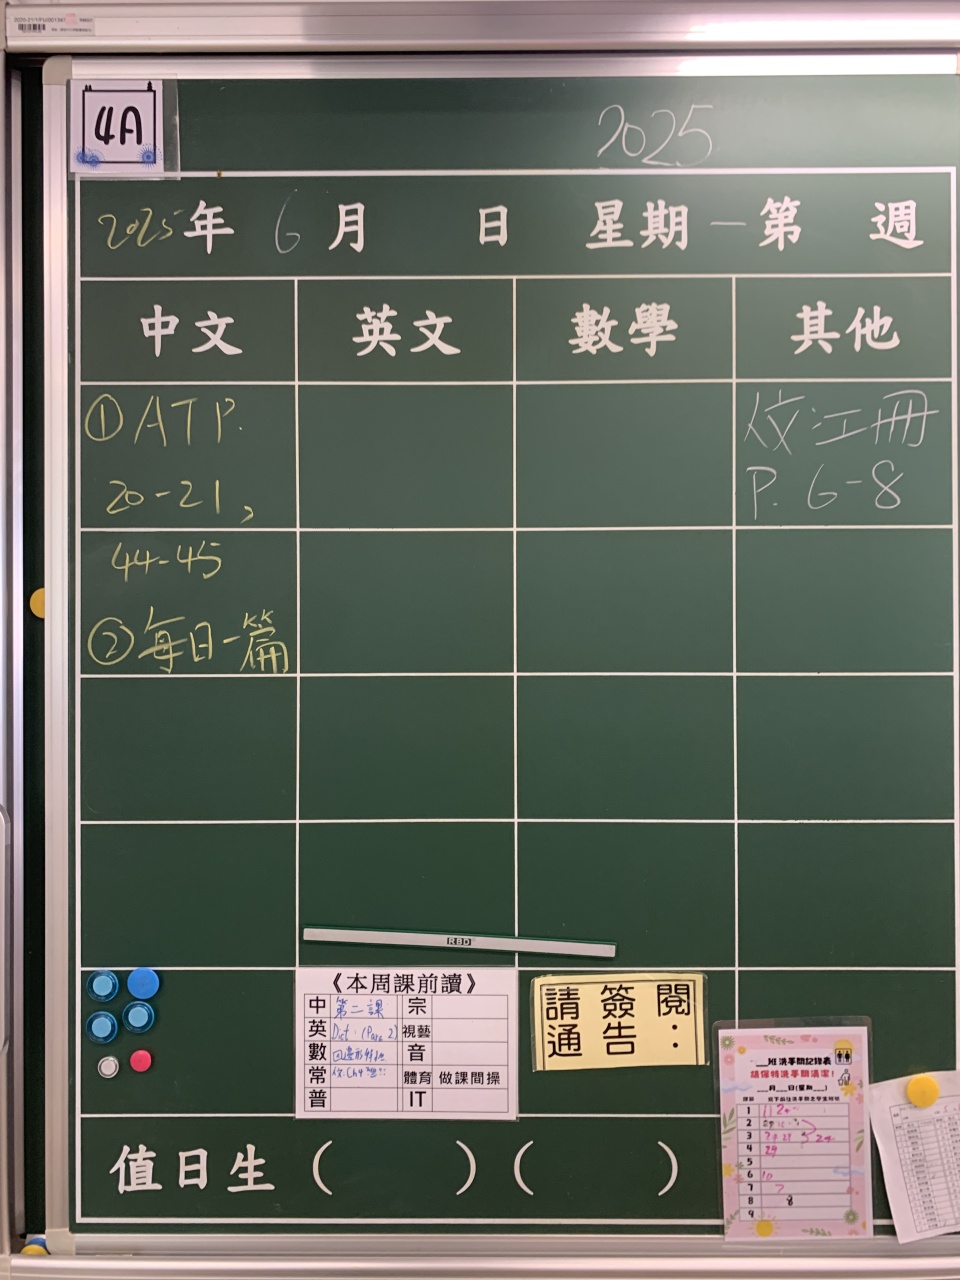 4A
2025
2025年 6月 日 星期一 第 週
中文 英文 數學 其他
①ATP.
20-21,
44-45
②每日一篇
P. 6-8
RBD
《本周課前讀》
中 第二課 宗
英 視藝
數 音
常 體育 做課間操
普 IT
請簽閱
通告:
班洗手間記錄表
請保持洗手間清潔!
___月___日(星期___)
1
2
3
4 29
5
6 10
7 7
8 8
9
值日生( )( )